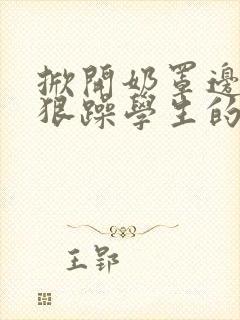 掀開奶罩邊
狠躁學生的
王郢